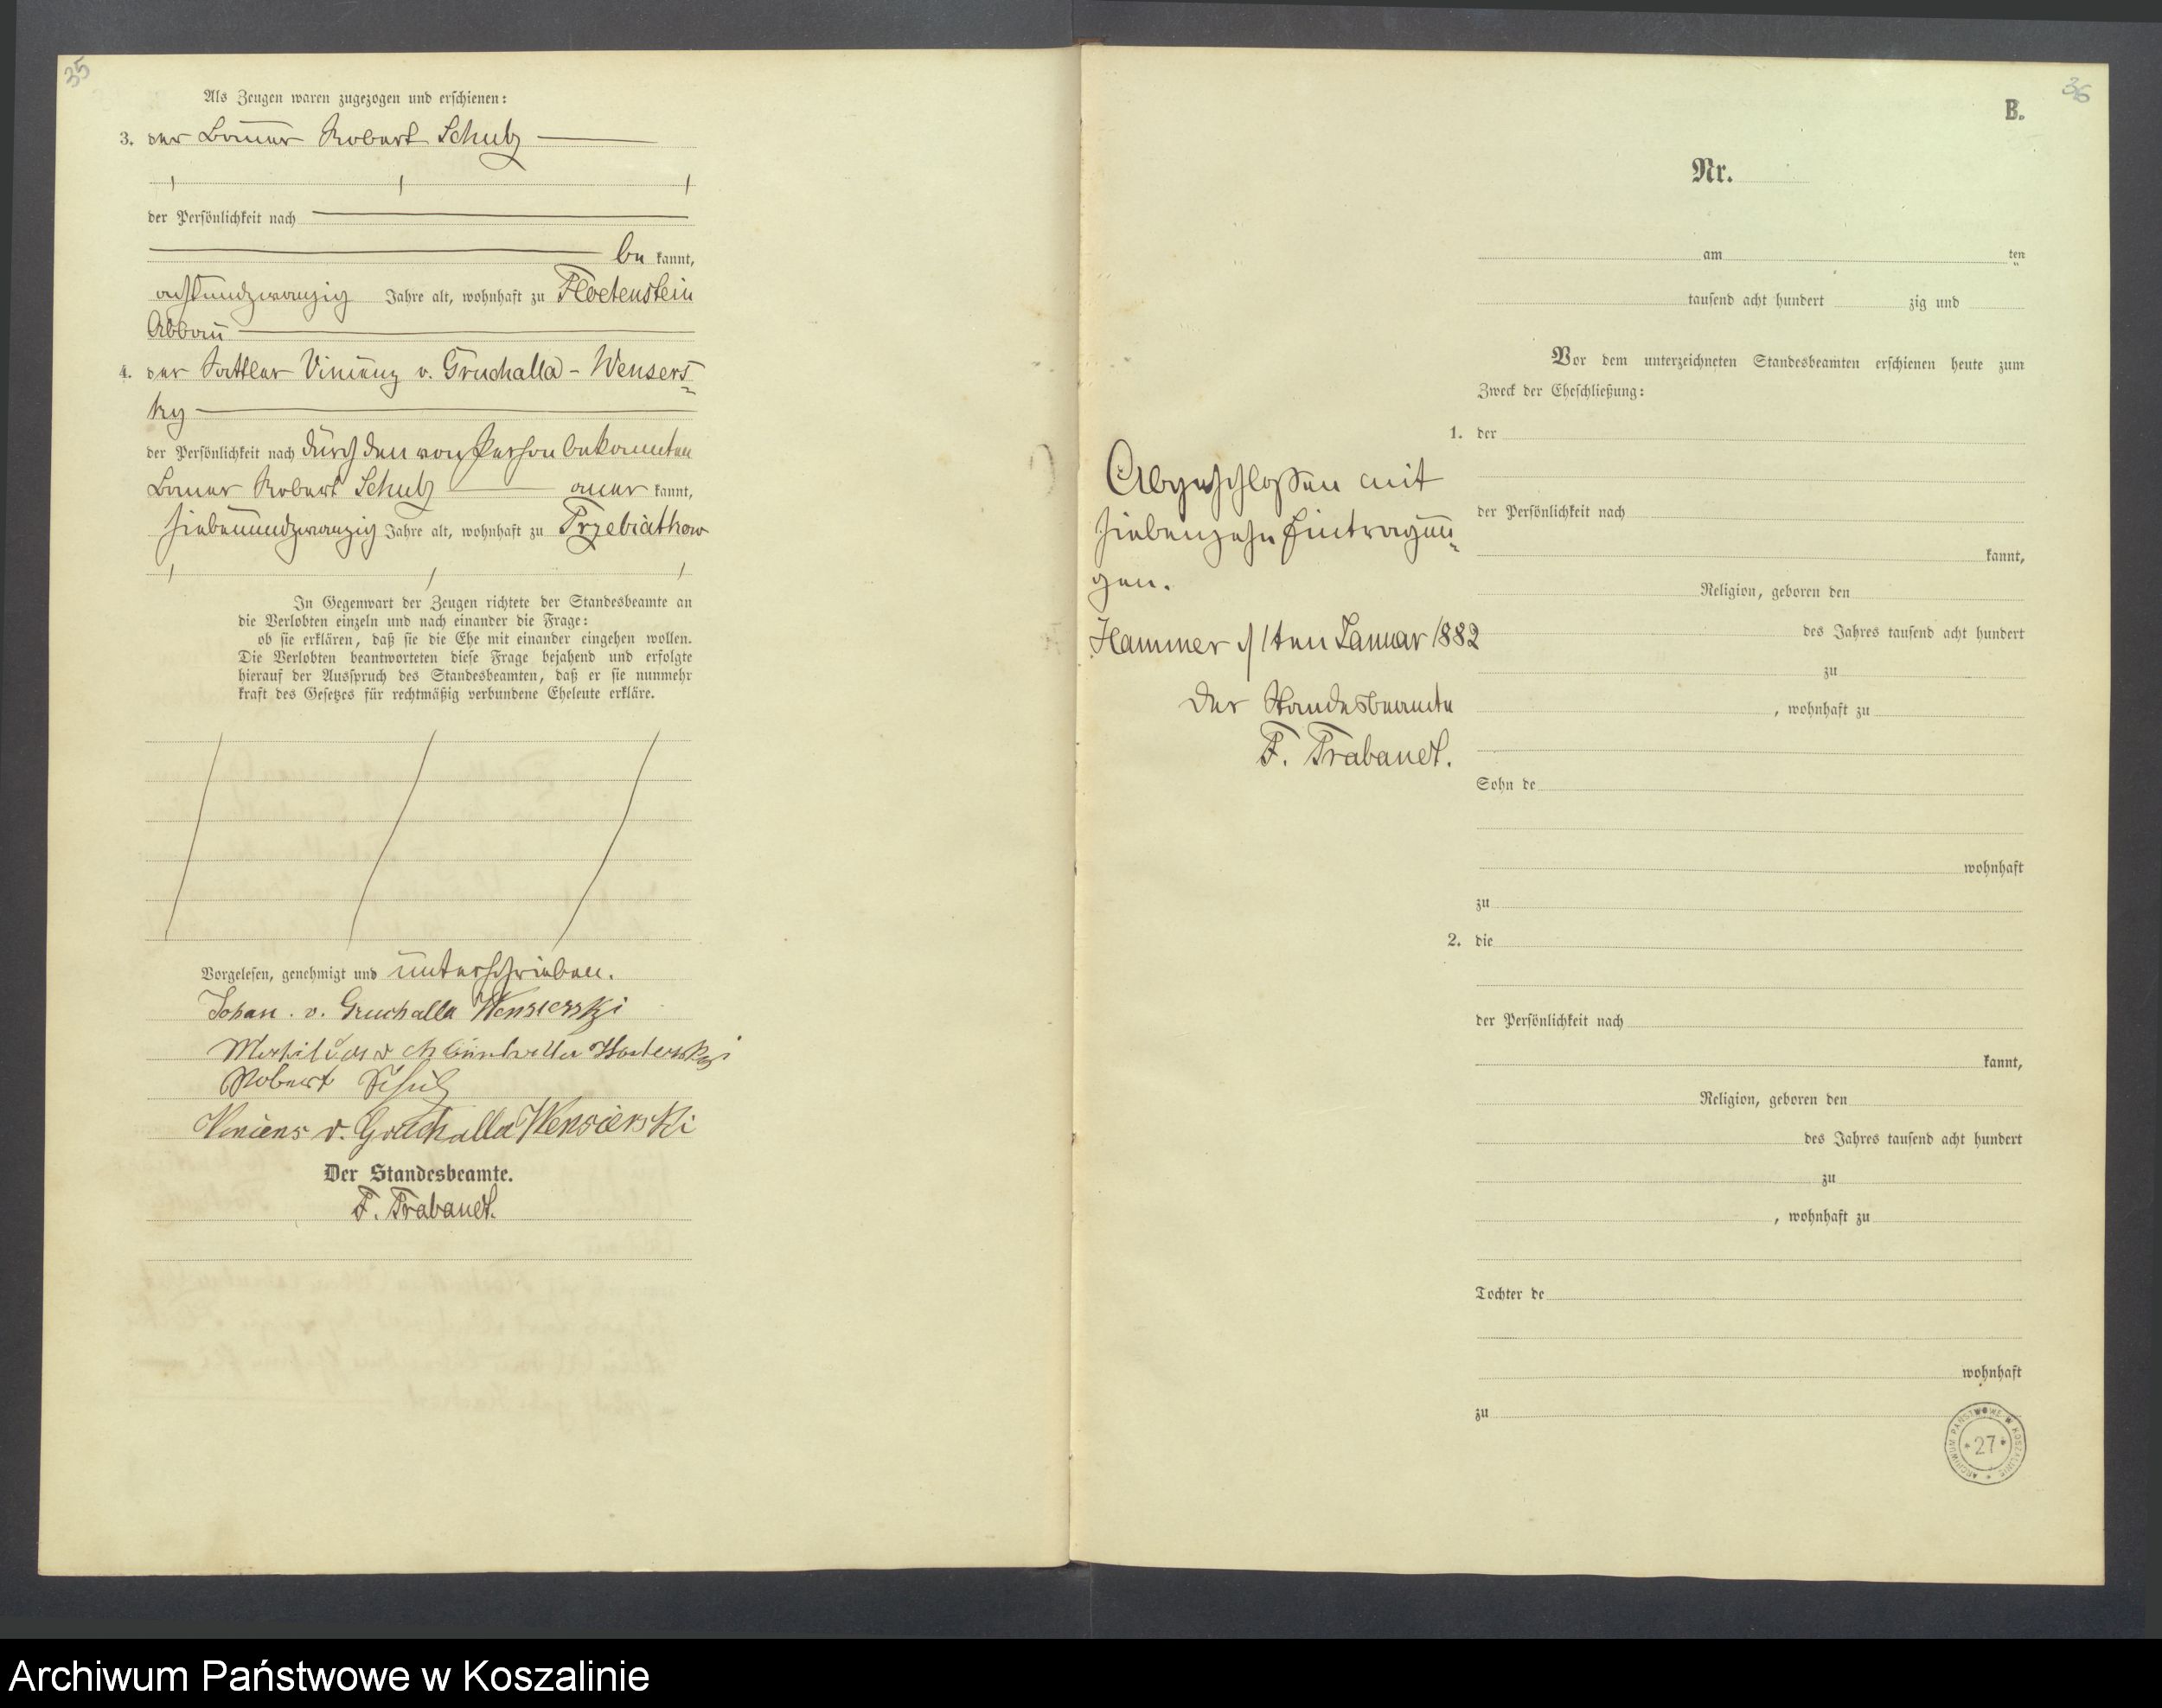 35
Als Zeugen waren zugezogen und erschienen:
3. der Bauer Robert Schulz
der Persönlichkeit nach
be kannt,
achtundzwanzig Jahre alt, wohnhaft zu Floetenstein
Abbau
4. der Sattler Vincenz v. Gruchalla-Wensers=
ky
der Persönlichkeit nach durch den von Person bekannten
Bauer Robert Schulz aner kannt,
siebenundzwanzig Jahre alt, wohnhaft zu Przebiathow
In Gegenwart der Zeugen richtete der Standesbeamte an
die Verlobten einzeln und nach einander die Frage:
ob sie erklären, daß sie die Ehe mit einander eingehen wollen.
Die Verlobten beantworteten diese Frage bejahend und erfolgte
hierauf der Ausspruch des Standesbeamten, daß er sie nunmehr
kraft des Gesetzes für rechtmäßig verbundene Eheleute erkläre.
Vorgelesen, genehmigt und unterschrieben.
Johan. v. Gruchalla Wensierski
Robert Schulz
Viniens v. Gruchalla Wensierski
Der Standesbeamte.
F. Trabandt.
36
B.
Nr.
am ten
tausend acht hundert zig und
Vor dem unterzeichneten Standesbeamten erschienen heute zum
Zweck der Eheschließung:
1. der
der Persönlichkeit nach
kannt,
Religion, geboren den
des Jahres tausend acht hundert
zu
, wohnhaft zu
Sohn de
wohnhaft
zu
2. die
der Persönlichkeit nach
kannt,
Religion, geboren den
des Jahres tausend acht hundert
zu
, wohnhaft zu
Tochter de
wohnhaft
zu
Abgeschlossen mit
siebenzehn Eintragun=
gen.
Hammer d/ 1ten Januar 1882
Der Standesbeamte
F. Trabandt.
ARCHIWUM PAŃSTWOWE W KOSZALINIE
* 27 *
Archiwum Państwowe w Koszalinie